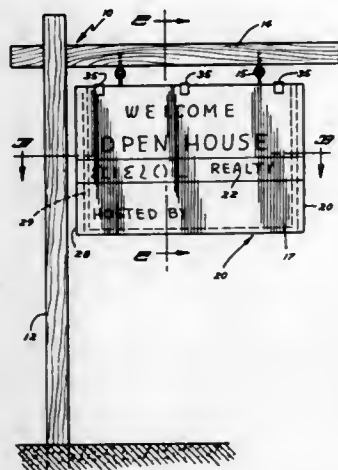 10
14
35 35 15 35
WELCOME
OPEN HOUSE
REALTY
22
29 20
HOSTED BY
28 17
20
12